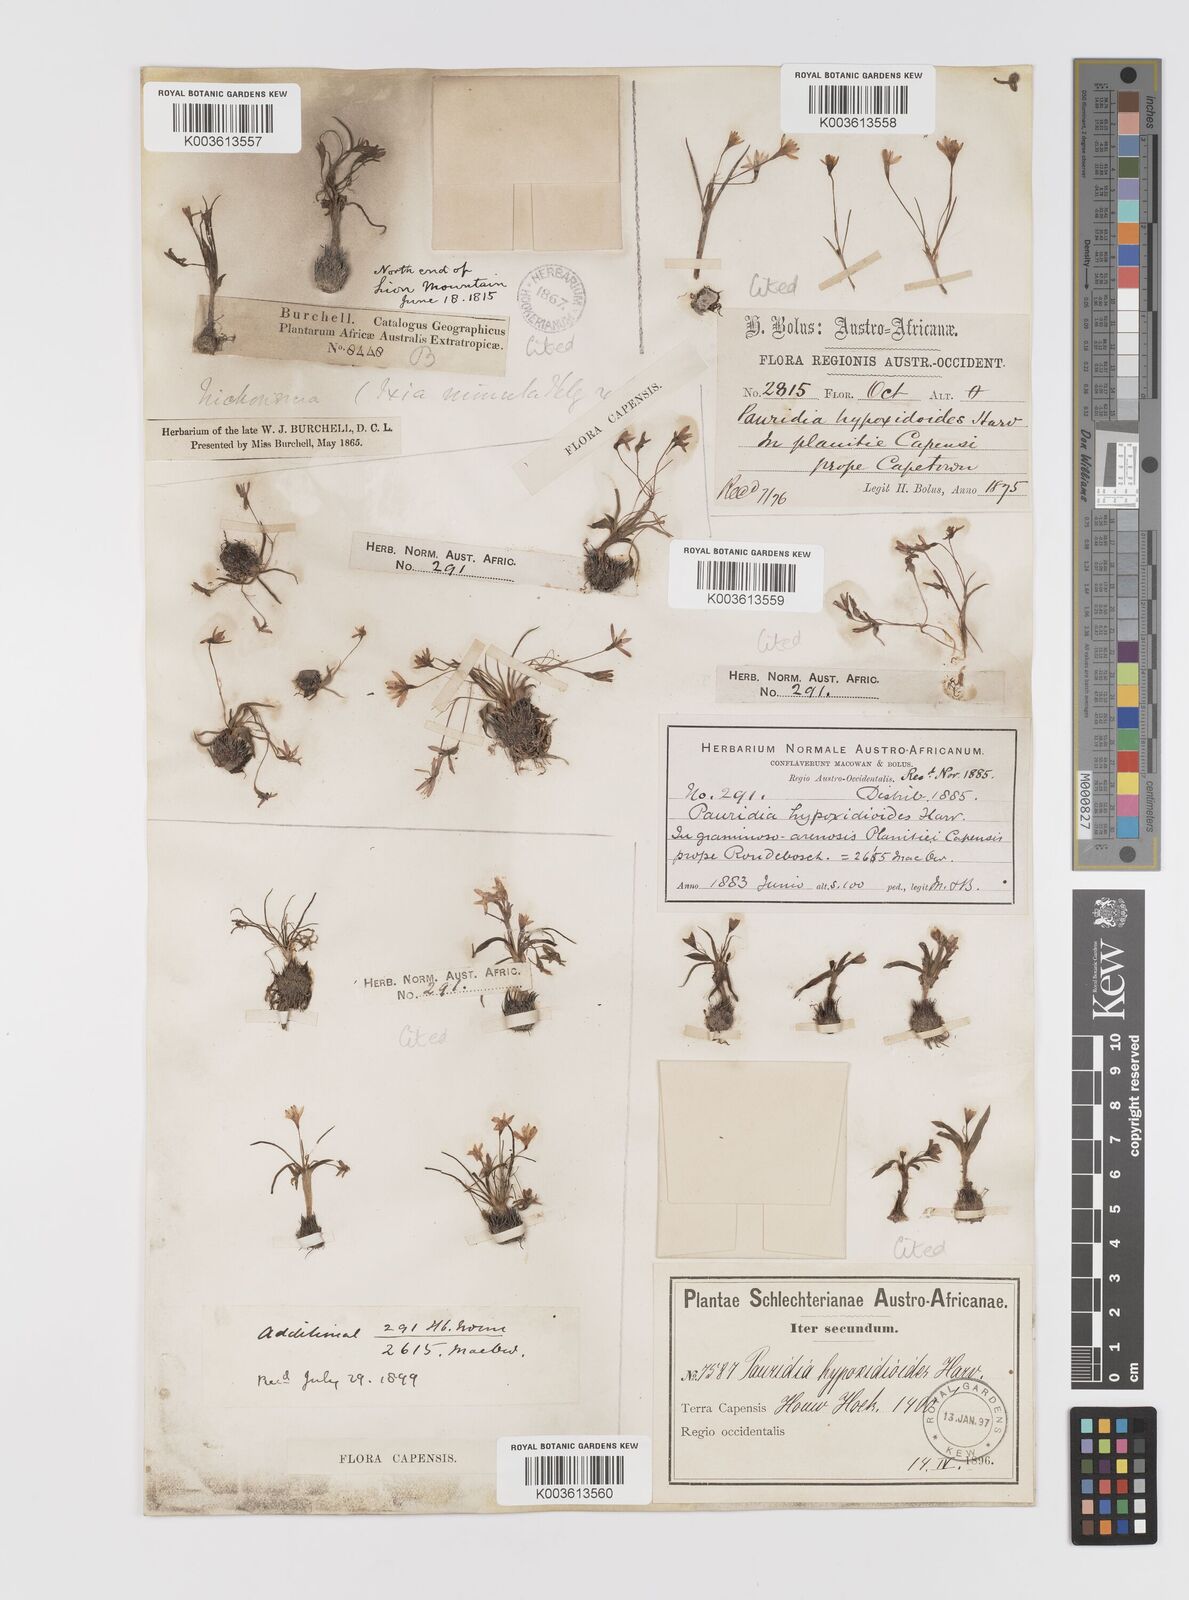 ROYAL BOTANIC GARDENS KEW
K003613557
North end of
Lion Mountain
June 18. 1815
HERBARIUM
HOOKERIANUM
1867.
Burchell. Catalogus Geographicus
Plantarum Africæ Australis Extratropicæ.
No. 8448
B
Cited
(Ixia minuta
Herbarium of the late W. J. BURCHELL, D. C. L.
Presented by Miss Burchell, May 1865.
ROYAL BOTANIC GARDENS KEW
K003613558
Cited
H. Bolus: Austro-Africanæ.
FLORA REGIONIS AUSTR.-OCCIDENT.
No. 2815 FLOR. Oct ALT.
Pauridia hypoxidoides Harv
In planitie Capensi
prope Capetown
Recd 7/76
Legit H. Bolus, Anno 1875
FLORA CAPENSIS.
HERB. NORM. AUST. AFRIC.
No. 291
ROYAL BOTANIC GARDENS KEW
K003613559
Cited
HERB. NORM. AUST. AFRIC.
No. 291.
HERBARIUM NORMALE AUSTRO-AFRICANUM.
CONFLAVERUNT MACOWAN & BOLUS.
Regio Austro-Occidentalis. Recd. Nov. 1885.
No. 291. Distrib. 1885.
Pauridia hypoxidioides Harv.
In graminoso-arenosis Planitiei Capensis
prope Rondebosch. = 2615 MacOw.
Anno 1883 Junio alt. s. 100 ped., legit M. & B.
HERB. NORM. AUST. AFRIC.
No. 291.
Cited
Additional 291 Hb. Norm
2615. MacOw.
Recd July 29. 1899
FLORA CAPENSIS.
ROYAL BOTANIC GARDENS KEW
K003613560
Cited
Plantae Schlechterianae Austro-Africanae.
Iter secundum.
No. 7587 Pauridia hypoxidioides Harv.
Terra Capensis Houw Hoek. 1400
Regio occidentalis
14. IV. 1896.
ROYAL GARDENS
13. JAN. 97
KEW
inches
Density
Don Williams
M000827
Kew
Royal Botanic Gardens
10
9
8
7
6
5
4
3
2
1
0 cm
copyright reserved